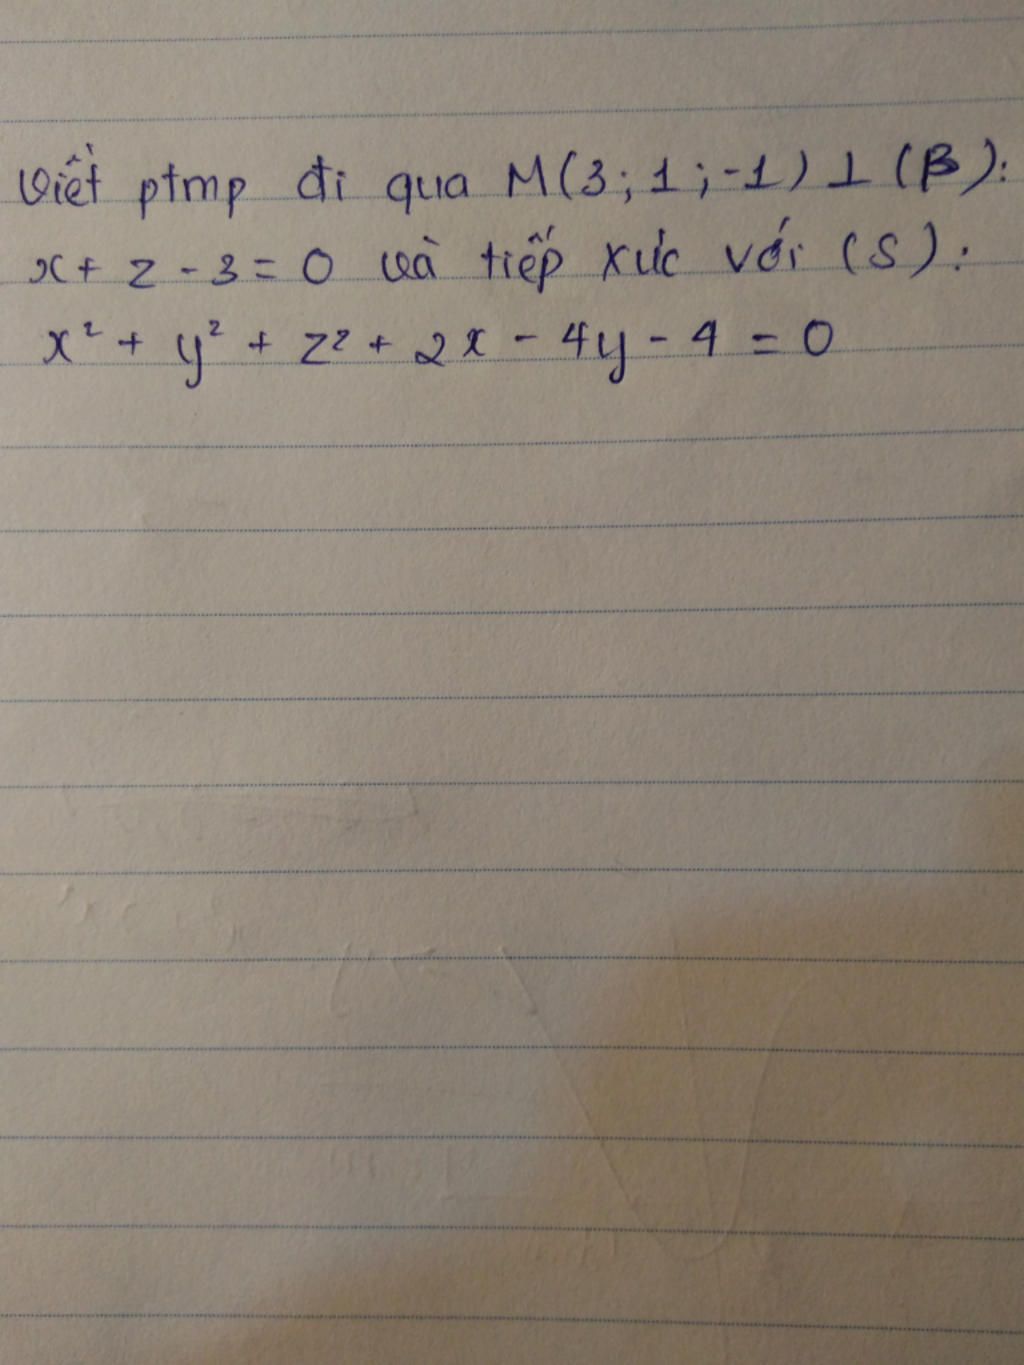 Viết ptmp đi qua M(3;1;-1) ⊥ (β):
x + z - 3 = 0 và tiếp xức với (S):
x² + y² + z² + 2x - 4y - 4 = 0